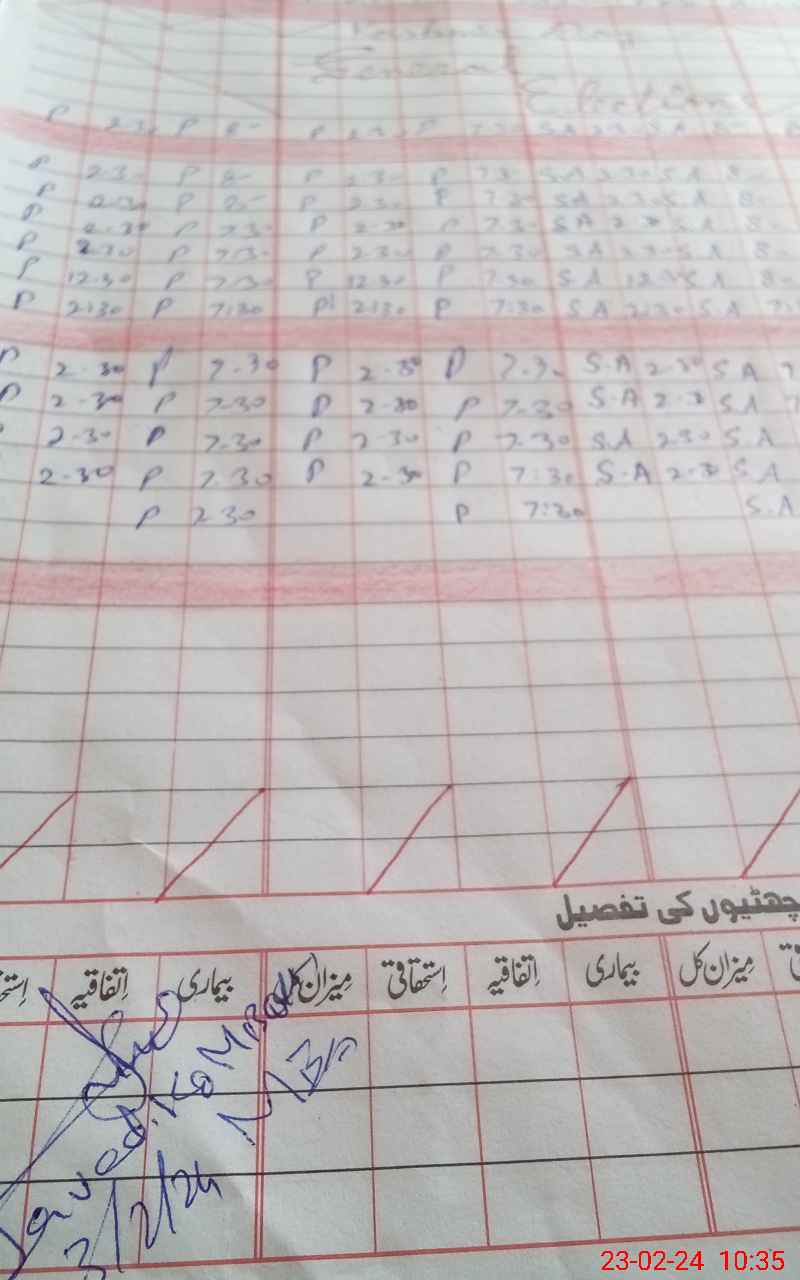 General
Elections
P 2-30 P 8- P 2-30 P 7.30 S.A 2.30 S.A 8-
P 2-30 P 8- P 2-30 P 7.30 S.A 2.30 S.A 8-
P 2-30 P 8- P 2-30 P 7.30 S.A 2.30 S.A 8-
P 2-30 P 7.30 P 2-30 P 7.30 S.A 2.30 S.A 8-
P 2-30 P 7.30 P 2.30 P 7.30 S.A 2.30 S.A 8-
P 12-30 P 7.30 P 12.30 P 7.30 S.A 12.30 S.A 8-
P 2:30 P 7:30 P 2:30 P 7:30 S.A 2:30 S.A
P 2-30 P 7-30 P 2-30 P 7.30 S.A 2-30 S A
P 2-30 P 7-30 P 2-30 P 7-30 S.A 2-30 S A
2-30 P 7-30 P 2-30 P 7-30 S.A 2-30 S.A
2-30 P 7.30 P 2-30 P 7:30 S.A 2-30 S.A
P 2 30 P 7:30 S.A
چھٹیوں کی تفصیل
اِتفاقیہ بیماری میزان کل اِستحقاقی اِتفاقیہ بیماری میزان کل
Javed
3/2/24
23-02-24 10:35